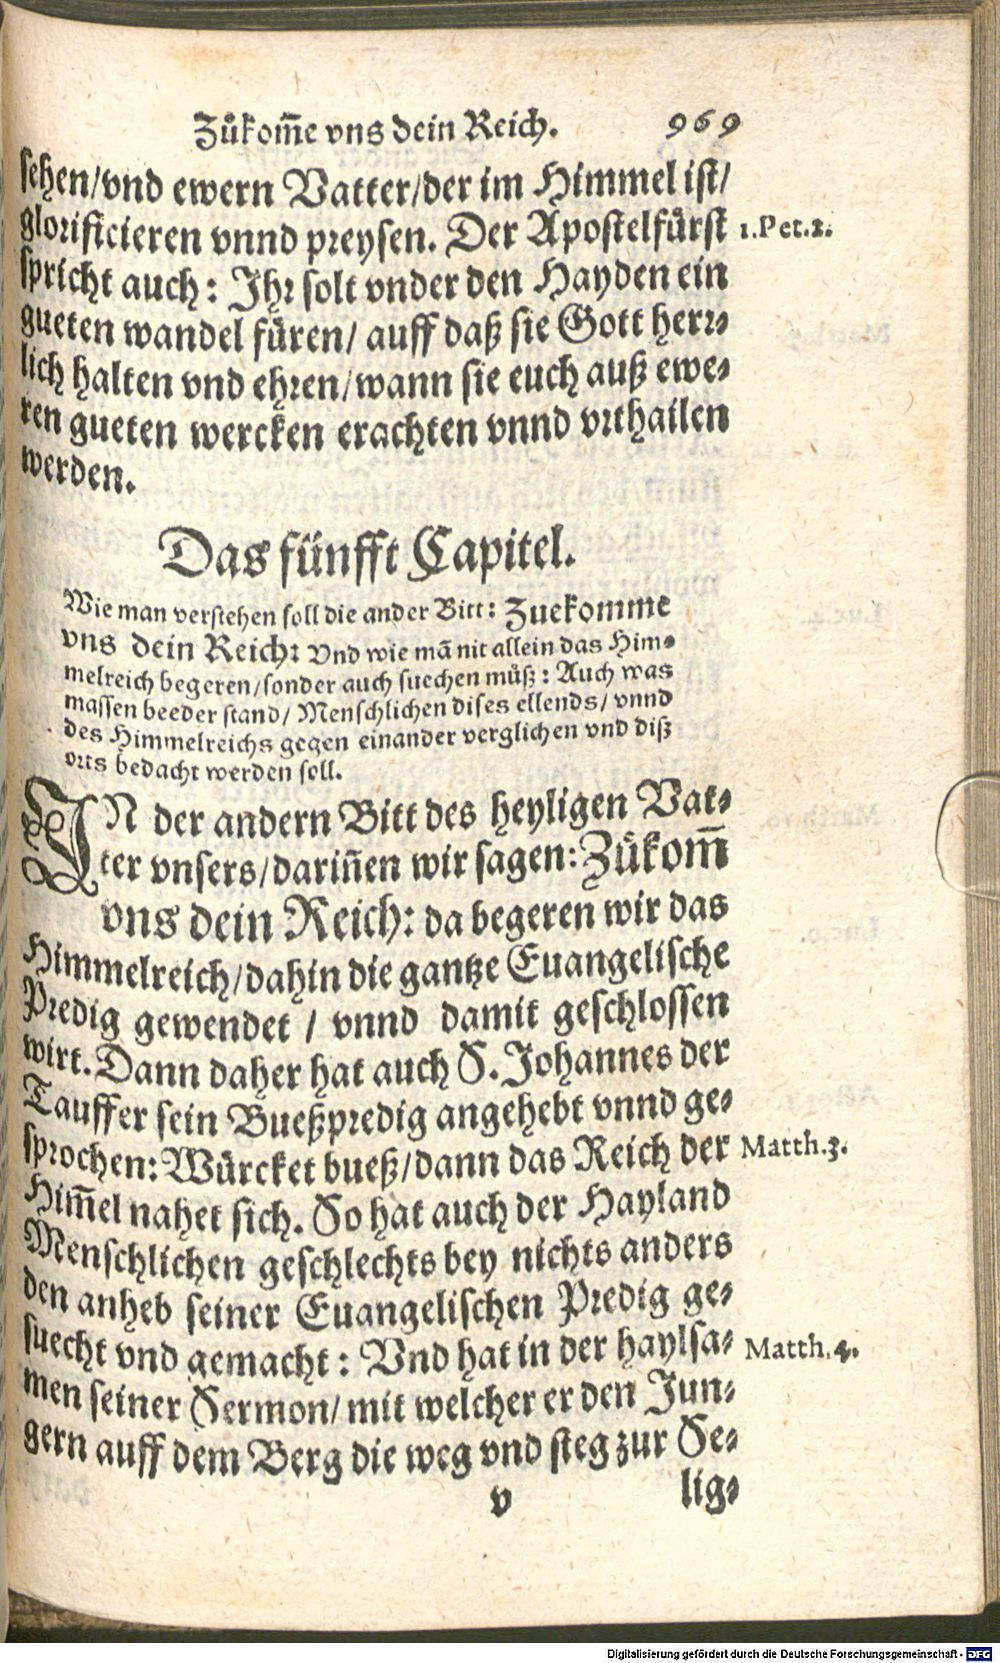 Zůkom̄e vns dein Reich. 969
sehen/vnd ewern Vatter/der im Himmel ist/
glorificieren vnnd preysen. Der Apostelfürst 1.Pet.2.
spricht auch: Ihr solt vnder den Hayden ein
gueten wandel füren/ auff daß sie Gott herr⸗
lich halten vnd ehren/wann sie euch auß ewe⸗
ren gueten wercken erachten vnnd vrthailen
werden.
Das fünfft Capitel.
Wie man verstehen soll die ander Bitt: Zuekomme
vns dein Reich: Vnd wie mã nit allein das Him⸗
melreich begeren/sonder auch suechen müß: Auch was
massen beeder stand/ Menschlichen dises ellends/ vnnd
des Himmelreichs gegen einander verglichen vnd diß
orts bedacht werden soll.
IN der andern Bitt des heyligen Vat⸗
ter vnsers/dariñen wir sagen: Zůkom̄
vns dein Reich: da begeren wir das
Himmelreich/dahin die gantze Euangelische
Predig gewendet / vnnd damit geschlossen
wirt. Dann daher hat auch S. Johannes der
Tauffer sein Bueßpredig angehebt vnnd ge⸗
sprochen: Würcket bueß/dann das Reich der Matth.3.
Him̄el nahet sich. So hat auch der Hayland
Menschlichen geschlechts bey nichts anders
den anheb seiner Euangelischen Predig ge⸗
suecht vnd gemacht: Vnd hat in der haylsa⸗ Matth.4.
men seiner Sermon/ mit welcher er den Jun⸗
gern auff dem Berg die weg vnd steg zur Se⸗
v lig⸗
Digitalisierung gefördert durch die Deutsche Forschungsgemeinschaft - DFG